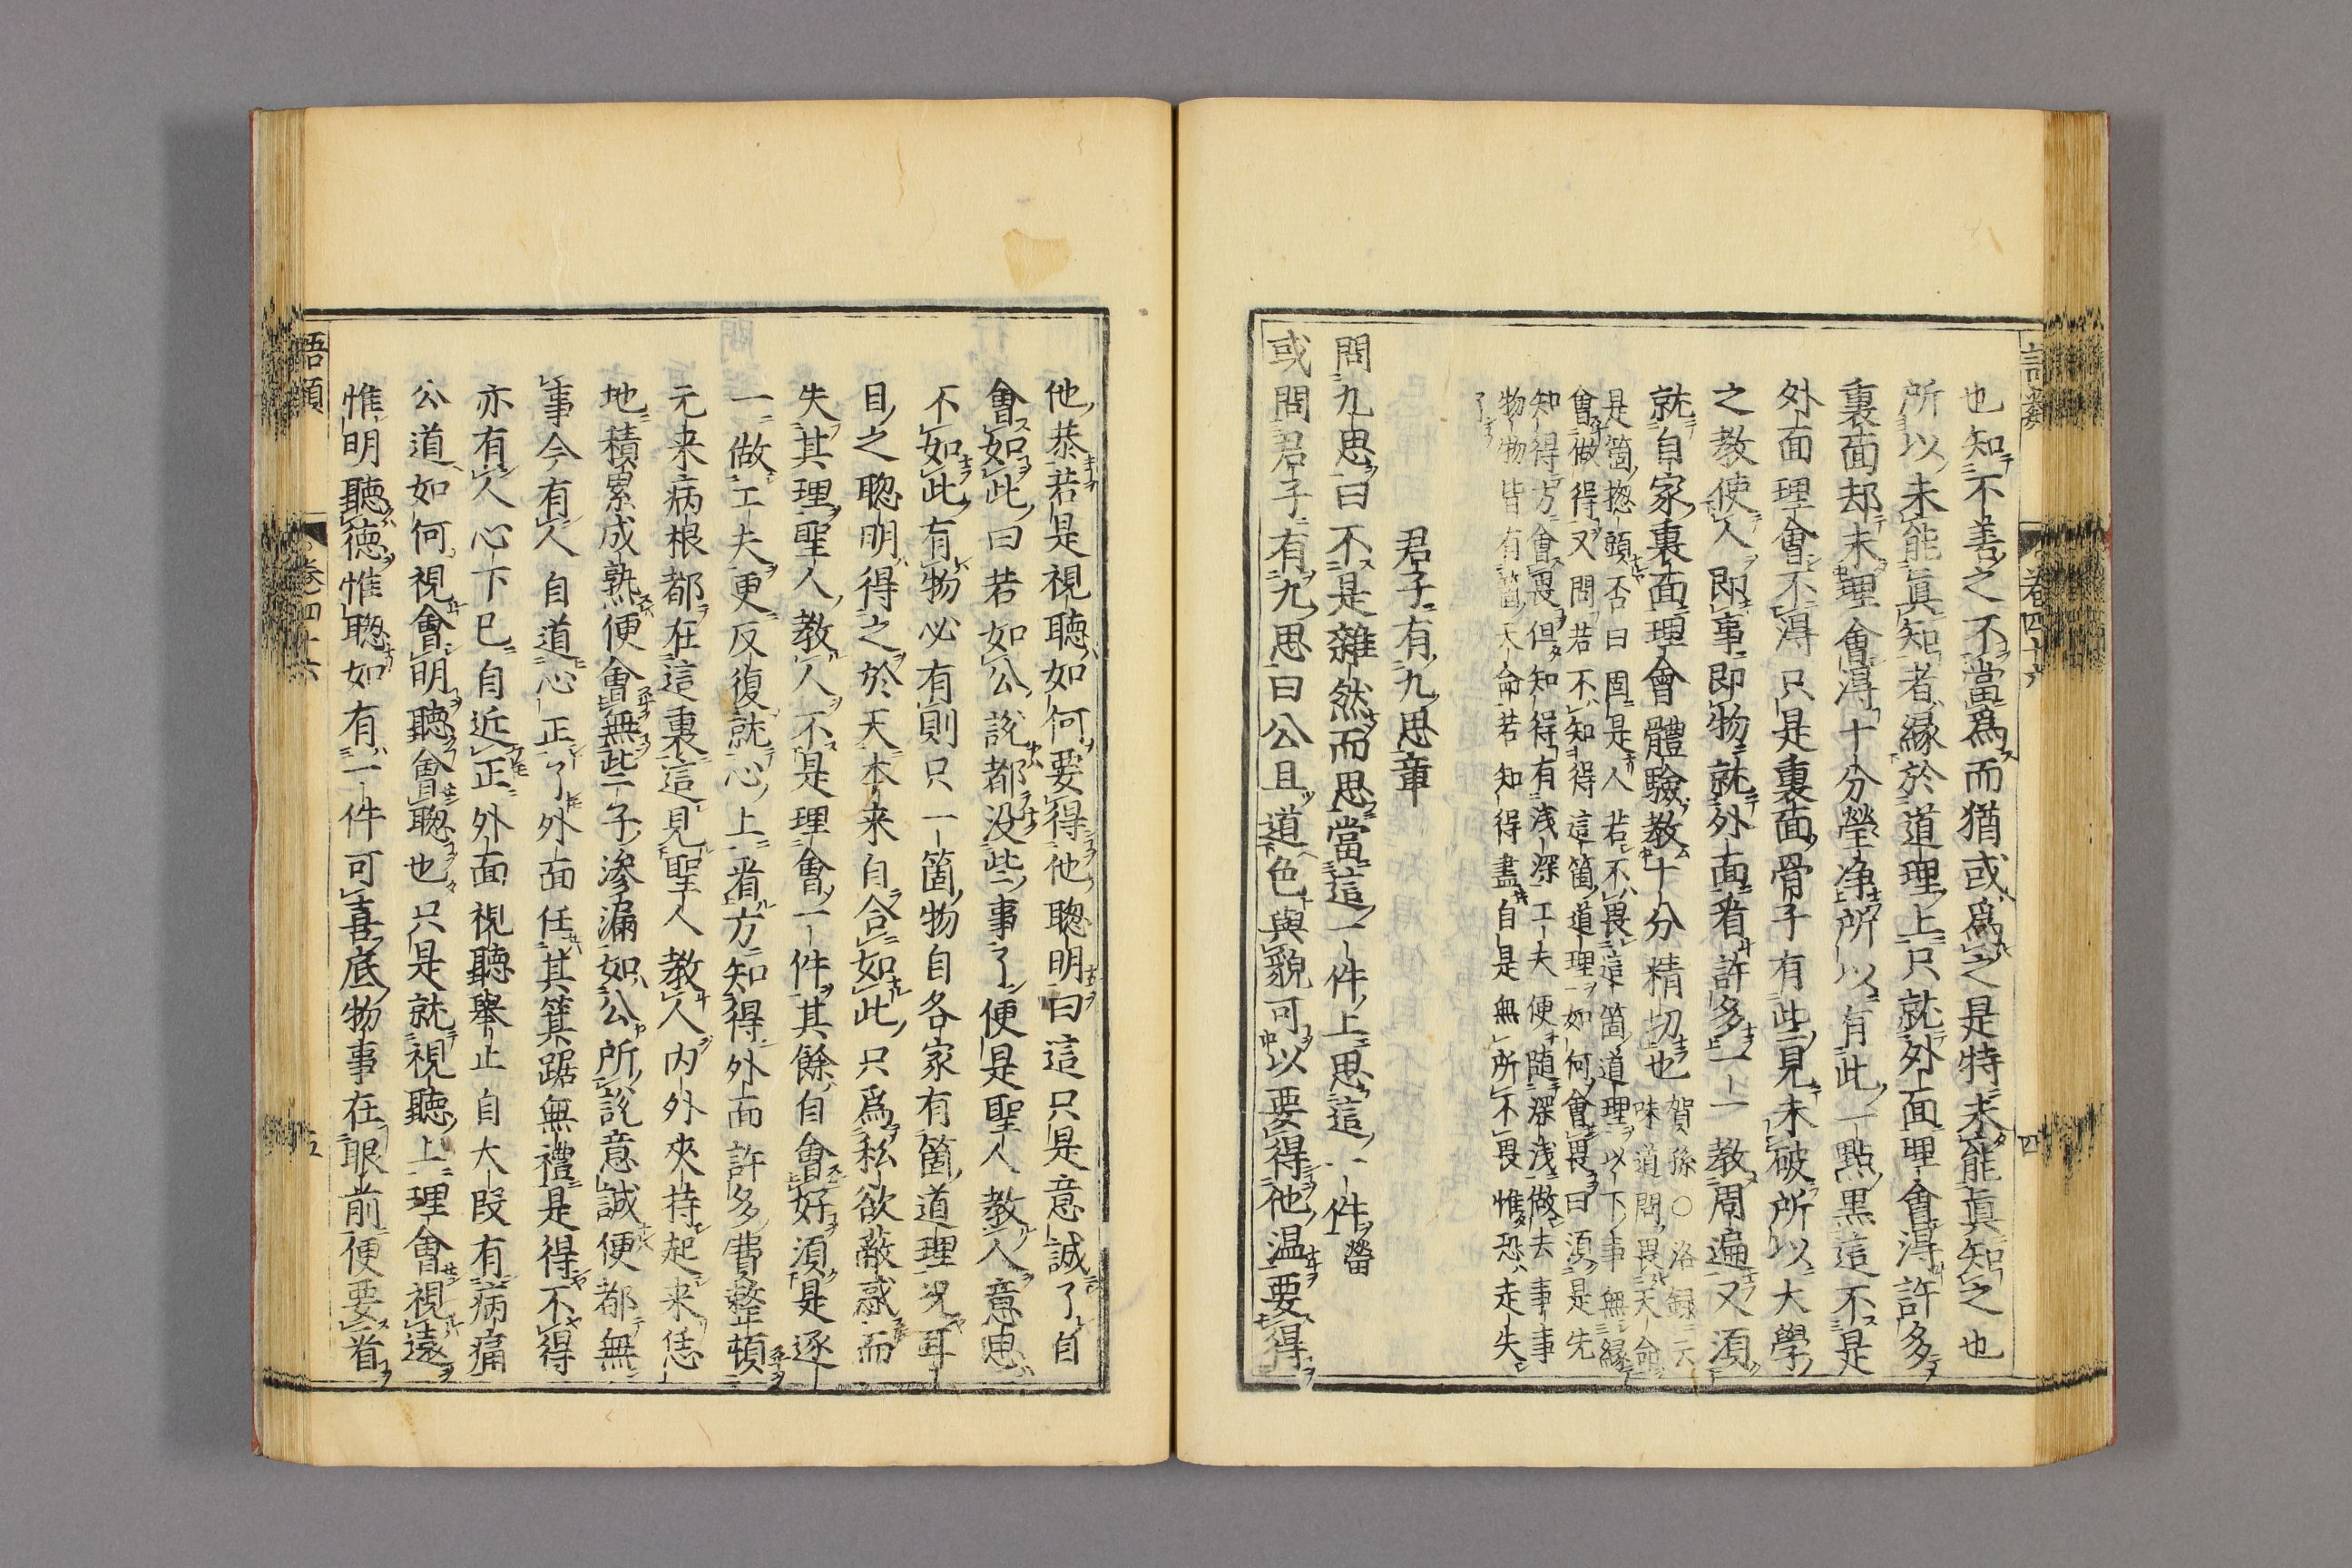 語類
卷四十六
四
也知不善之不當爲而猶或爲之是特未能眞知之也
所以未能眞知者緣於道理上只就外面理會得許多
裏面却未理會得十分瑩净所以有此一點黒這不是
外面理會不得只是裏面骨子有些見未破所以大學
之教使人即事即物就外面看許多一一教周遍又須
就自家裏面理會體驗教十分精切也賀孫○洛録云
味道問畏天命
是箇揔頭否曰固是人若不畏這箇道理以下事無縁
會做得又問若不知得這箇道理如何會畏曰須是先
知得方會畏但知得有浅深工夫便随深浅做去事事
物物皆有箇天命若知得盡自是無所不畏惟恐走失
了
君子有九思章
問九思曰不是雜然而思當這一件上思這一件㽦
或問君子有九思曰公且道色與貌可以要得他温要得
他恭若是視聽如何要得他聰明曰這只是意誠了自
會如此曰若如公說都没些事了便是聖人教人意思
不如此有物必有則只一箇物自各家有箇道理况耳
目之聰明得之於天本来自合如此只爲私欲蔽惑而
失其理聖人教人不是理會一件其餘自會好須是逐
一做工夫更反復就心上看方知得外面許多費整頓
元来病根都在這裏這見聖人教人内外夾持起来恁
地積累成熟便會無些子渗漏如公所說意誠便都無
事今有人自道心正了外面任其箕踞無禮是得不得
亦有人心下已自近正外面視聽舉止自大段有病痛
公道如何視會明聽會聰也只是就視聽上理會視遠
惟明聽德惟聰如有一件可喜底物事在眼前便要看
語類
卷四十六
五